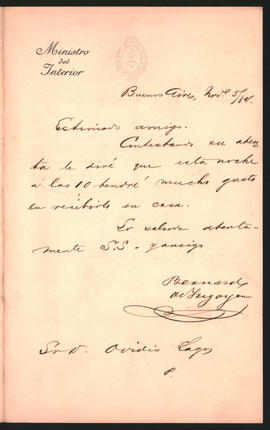 Ministro
del
Interior
Buenos Aires, Nov 5/84
Estimado amigo.
Contestando su aten-
ta le diré que esta noche
á las 10 tendré mucho gusto
en recibirlo en casa.
Lo saluda atenta-
mente S.S. y amigo
Bernardo
de Irigoyen
Sr. D. Ovidio Lagos